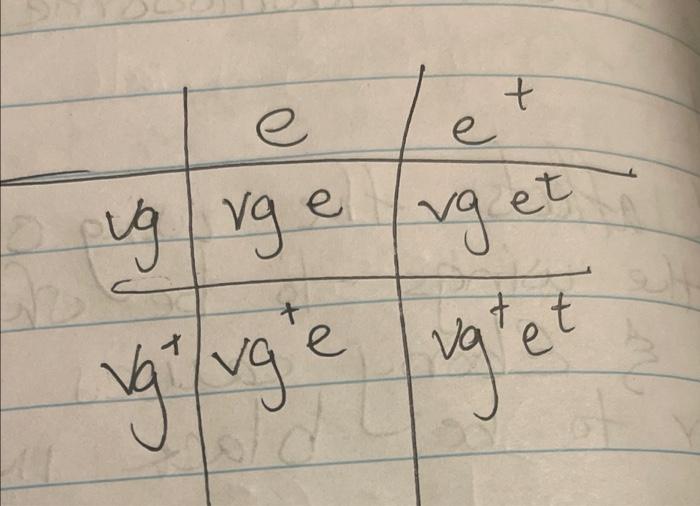 e e⁺
vg vg e vg e⁺
vg⁺ vg⁺e vg⁺e⁺